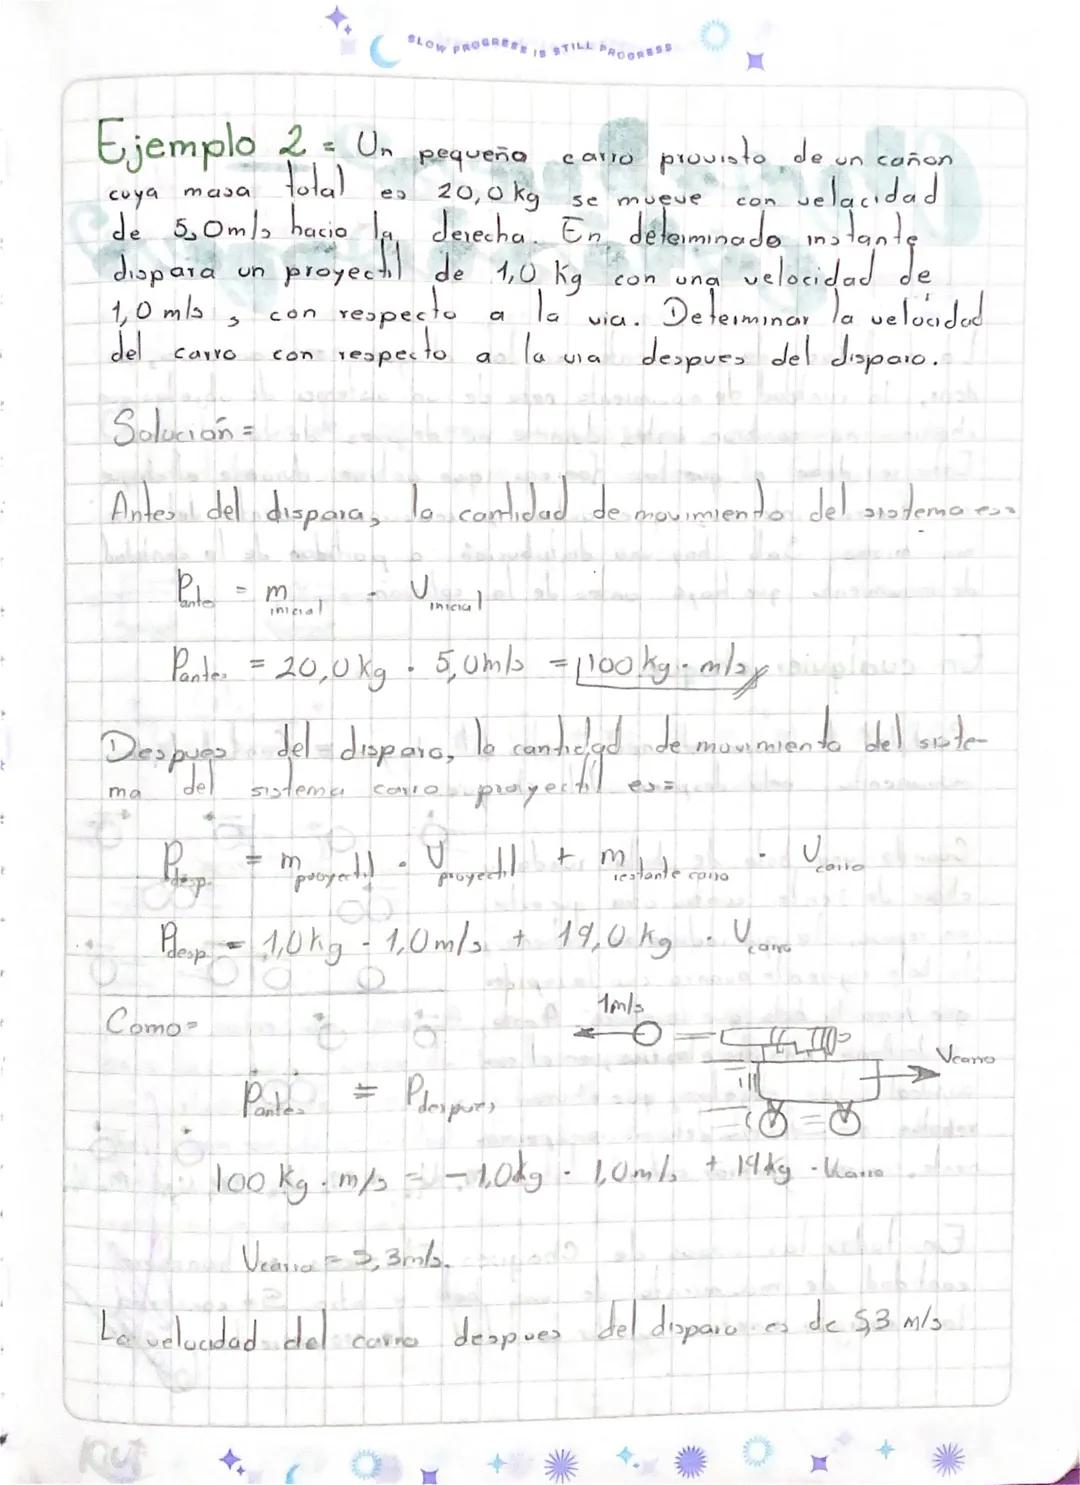 SLOW PROGRESS IS STILL PROGRESS
Ejemplo 2 = Un pequeño carro provisto de un cañon
cuya masa total es 20,0 kg se mueve con velacidad
de 5,0 m/s hacia la derecha. En determinado instante
dispara un proyectil de 1,0 Kg con una velocidad de
1,0 m/s, con respecto a la via. Determinar la velocidad
del carro con respecto a la via despues del disparo.
Solución =
Antes del dispara, la cantidad de movimiento del sistema es=
Pantes = m inicial · V inicial
Pantes = 20,0 kg · 5,0 m/s = 100 kg · m/s
Despues del disparo, la cantidad de movimiento del siste-
ma del sistema carro proyectil es=
Pdesp. = m proyectil · V proyectil + m restante carro · V carro
Pdesp = 1,0 kg - 1,0 m/s + 19,0 kg · V carro
1m/s
Como=
Vcarro
Pantes = Pdespues
100 kg · m/s = - 1,0 kg · 1,0 m/s + 19 kg · Vcarro
Vcarro = 5,3 m/s.
La velocidad del carro despues del disparo es de 5,3 m/s